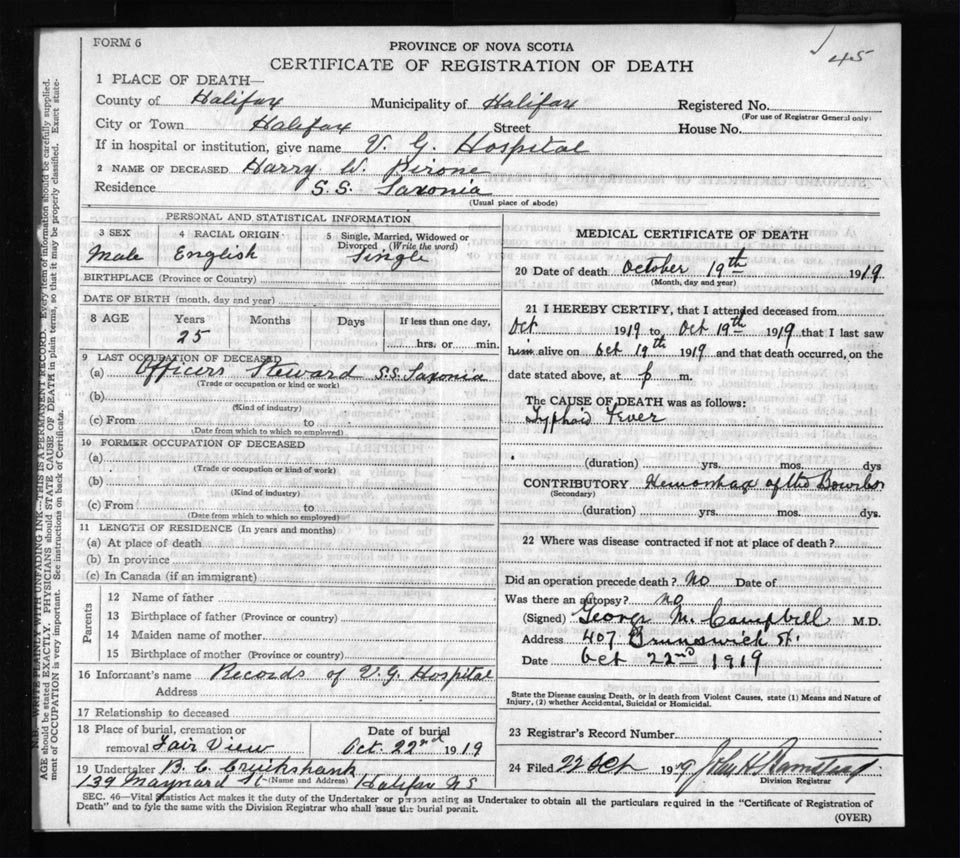 FORM 6
PROVINCE OF NOVA SCOTIA
45
CERTIFICATE OF REGISTRATION OF DEATH
1 PLACE OF DEATH—
County of Halifax Municipality of Halifax Registered No.
(For use of Registrar General only)
City or Town Halifax Street House No.
If in hospital or institution, give name V. G. Hospital
2 NAME OF DECEASED Harry W. Pirone
Residence S.S. Saxonia
(Usual place of abode)
PERSONAL AND STATISTICAL INFORMATION
3 SEX 4 RACIAL ORIGIN 5 Single, Married, Widowed or Divorced (Write the word)
Male English Single
BIRTHPLACE (Province or Country)
DATE OF BIRTH (month, day and year)
8 AGE Years Months Days If less than one day,
25 hrs. or min.
9 LAST OCCUPATION OF DECEASED
(a) Officers Steward S.S. Saxonia
(Trade or occupation or kind of work)
(b)
(Kind of industry)
(c) From to
(Date from which to which so employed)
10 FORMER OCCUPATION OF DECEASED
(a)
(Trade or occupation or kind of work)
(b)
(Kind of industry)
(c) From to
(Date from which to which so employed)
11 LENGTH OF RESIDENCE (In years and months)
(a) At place of death
(b) In province
(c) In Canada (if an immigrant)
Parents
12 Name of father
13 Birthplace of father (Province or country)
14 Maiden name of mother
15 Birthplace of mother (Province or country)
16 Informant's name Records of V.G. Hospital
Address
17 Relationship to deceased
18 Place of burial, cremation or Date of burial
removal Fair View Oct. 22nd 1919
19 Undertaker B. C. Cruikshank
139 Maynard St (Name and Address) Halifax NS
MEDICAL CERTIFICATE OF DEATH
20 Date of death October 19th 1919
(Month, day and year)
21 I HEREBY CERTIFY, that I attended deceased from
Oct 1919 to Oct 19th 1919 that I last saw
him alive on Oct 19th 1919 and that death occurred, on the
date stated above, at p m.
The CAUSE OF DEATH was as follows:
Typhoid Fever
(duration) yrs. mos. dys
CONTRIBUTORY Hemorrhax of the
(Secondary)
(duration) yrs. mos. dys.
22 Where was disease contracted if not at place of death?
Did an operation precede death? No Date of
Was there an autopsy? no
(Signed) George M. Campbell M.D.
Address 407 Brunswick St.
Date Oct 22nd 1919
State the Disease causing Death, or in death from Violent Causes, state (1) Means and Nature of
Injury, (2) whether Accidental, Suicidal or Homicidal.
23 Registrar's Record Number
24 Filed 22 Oct 1919 John H.
Division Registrar
SEC. 46—Vital Statistics Act makes it the duty of the Undertaker or person acting as Undertaker to obtain all the particulars required in the "Certificate of Registration of
Death" and to fyle the same with the Division Registrar who shall issue the burial permit.
(OVER)
N.B. WRITE PLAINLY WITH UNFADING INK—THIS IS A PERMANENT RECORD. Every item of information should be carefully supplied.
AGE should be stated EXACTLY. PHYSICIANS should STATE CAUSE OF DEATH in plain terms, so that it may be properly classified. Exact statement
of OCCUPATION is very important. See instructions on back of Certificate.